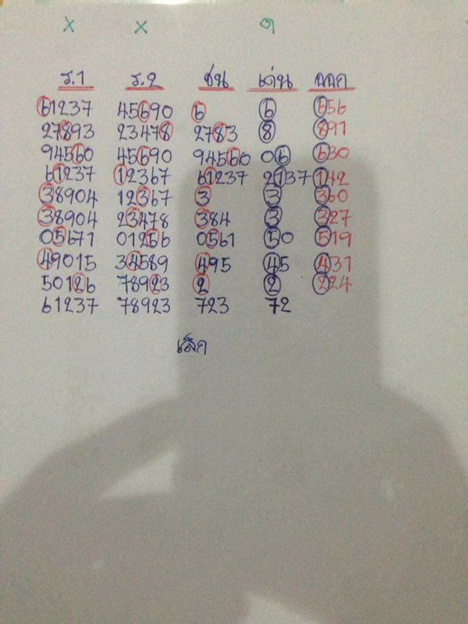 x x ๑
ร.1 ร.2 ชน เด่น ออก
61237 45690 6 6 656
27893 23478 2783 8 897
94560 45690 94560 06 630
61237 12367 61237 2137 142
38904 12367 3 3 360
38904 23478 384 3 327
05671 01256 0561 50 519
49015 34589 495 45 431
50126 78923 2 2 224
61237 78923 723 72